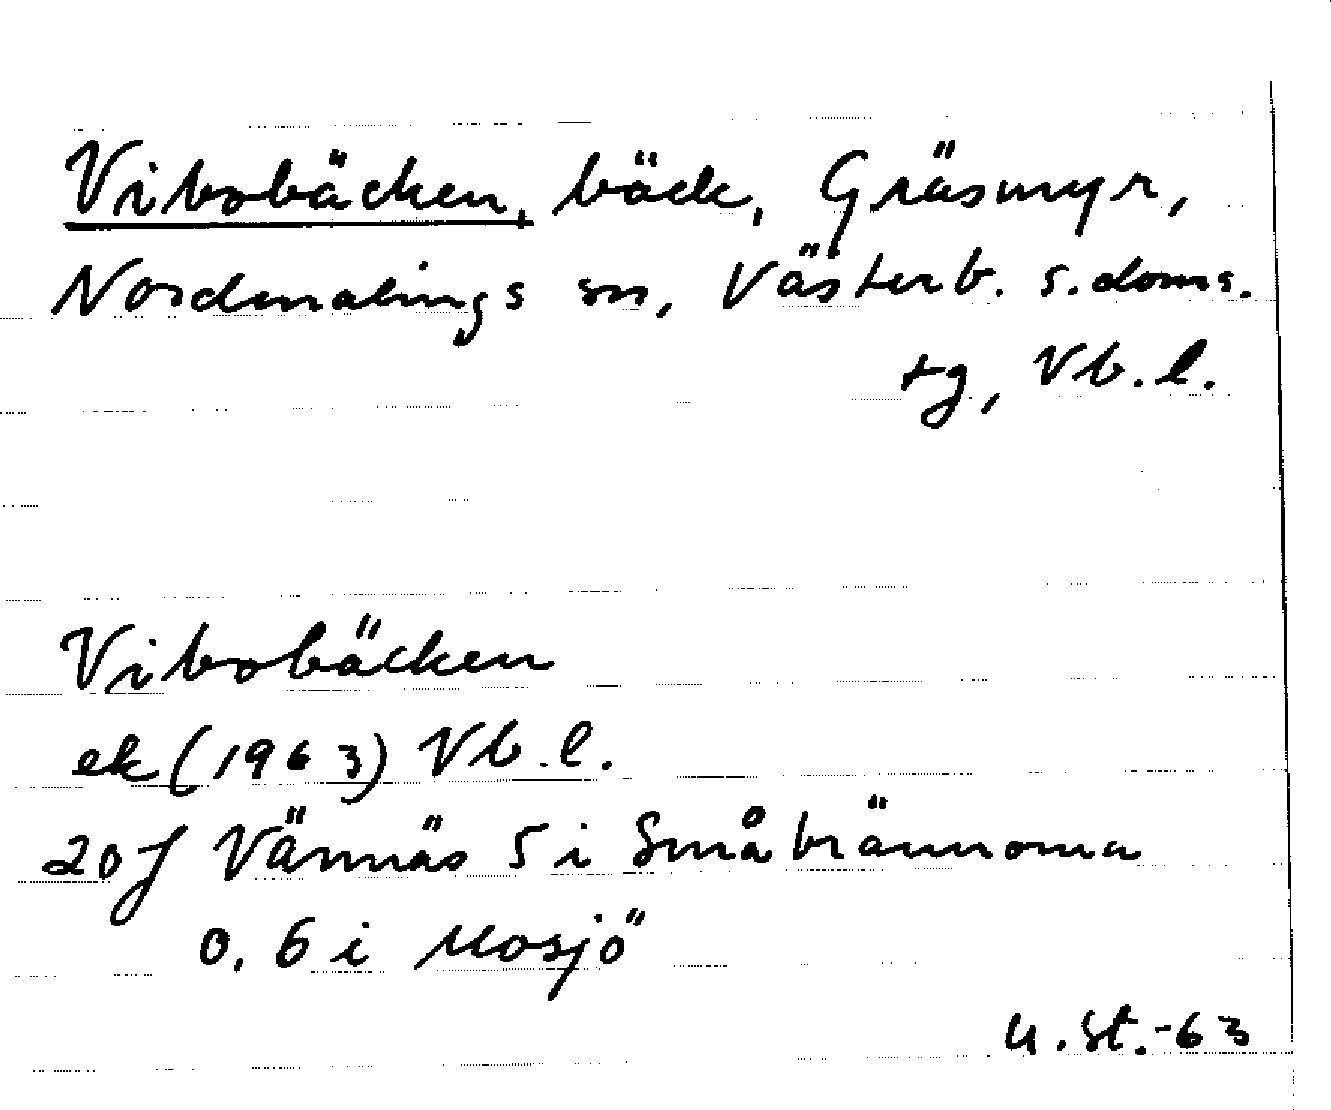 Vibobäcken, bäck, Gräsmyr,
Nordmalings sn, Västerb. s. doms.
tg, Vb. l.
Vibobäcken
ek (1963) Vb. l.
20J Vännäs 5 i Småbrännorna
o. 6 i Mosjö
U. St. -63